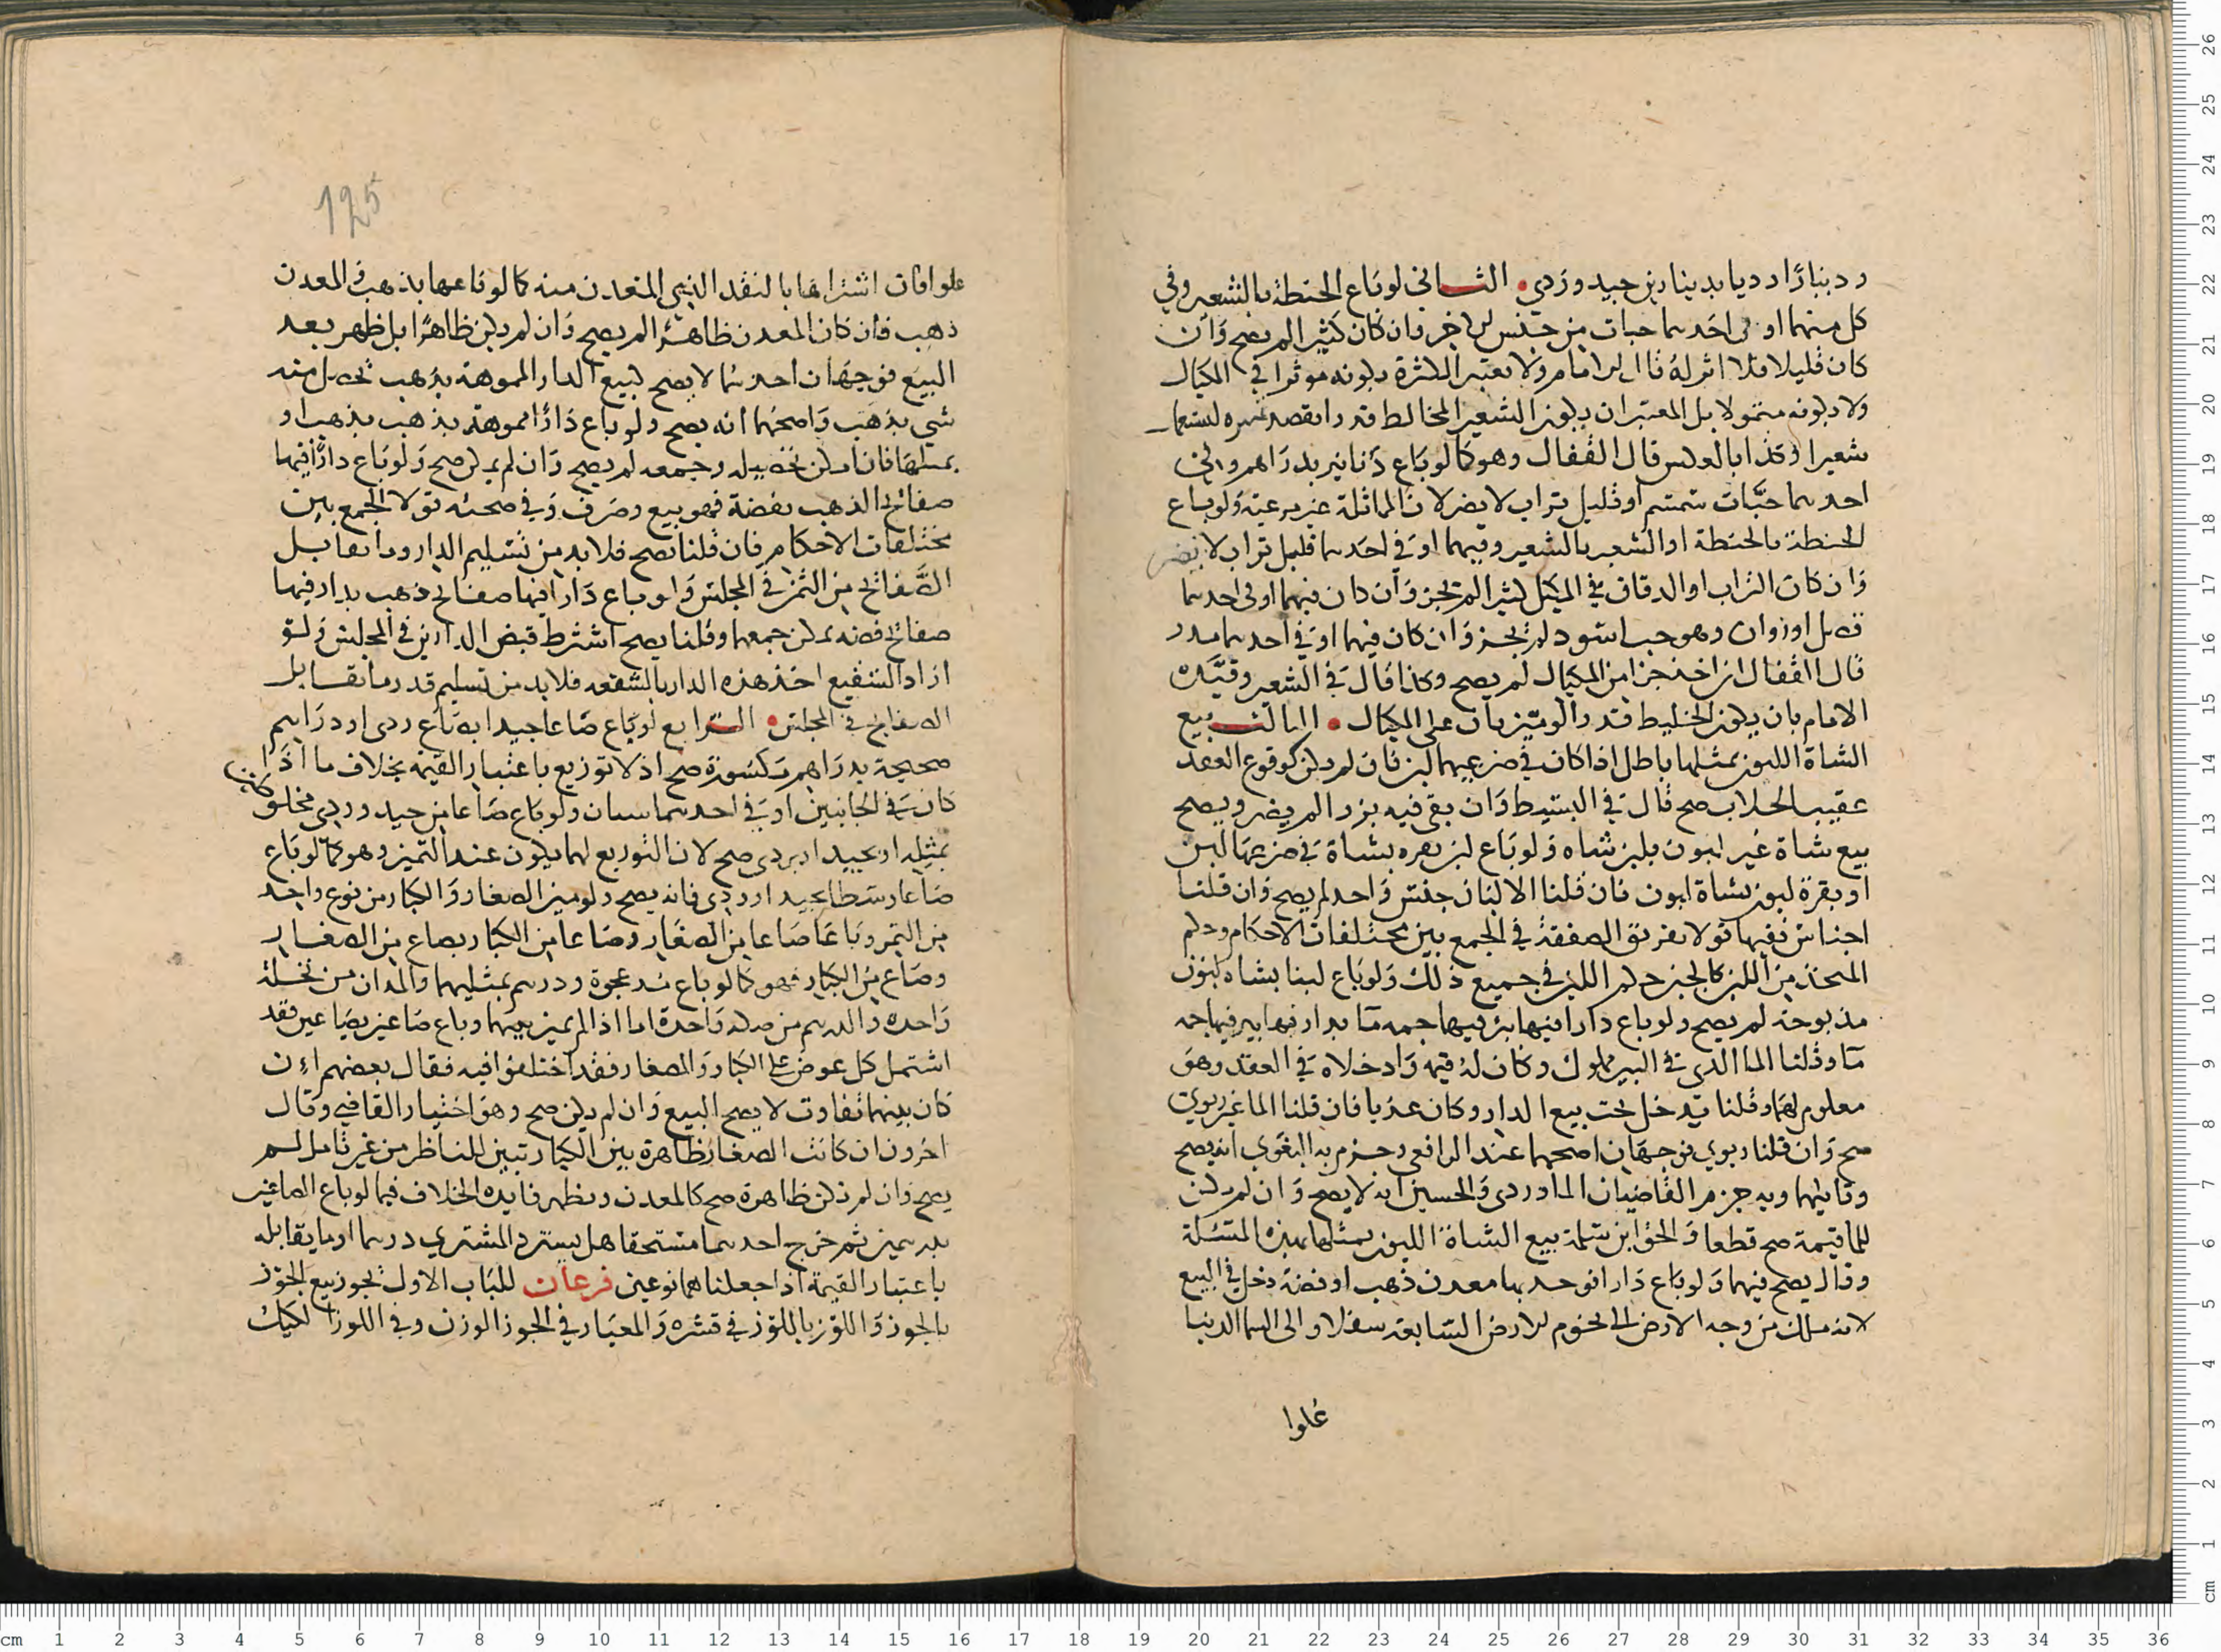 و دينارًا رديا بدينارين جيد وردي الثاني لو باع الحنطة بالشعير وفي
كل منهما او في احدهما حبات من جنس الاخر فان كان كثيرا لم يصح وان
كان قليلا فلا اثر له قال الامام ولا تعتبر الكثرة بكونه موثرا في المكيال
ولا بكونه متمولا بل المعتبر ان يكون الشعير المخالط قدرا يقصد
شعيرا وكذا بالعكس قال القفال وهو كما لو باع دنانير بدراهم وفي
احدهما حبات سمسم او قليل تراب لا يضر لان المماثلة غير مرعية ولو باع
الحنطة بالحنطة او الشعير بالشعير وفيهما او في احدهما قليل تراب لا يضر
وان كان التراب او الدقاق في المكيل كثيرا لم يجز وان كان فيهما او في احدهما
او زوان وهو حب اسود لم يجز وان كان فيهما او في احدهما مدر
قال القفال ان اخذ جزا من المكيال لم يصح وكذا قال في الشعير وقيده
الامام بان يكون الخليط قدرا لو ميز بان على المكيال الثالث بيع
الشاة اللبون بمثلها باطل اذا كان في ضرعيهما لبن فان لم يكن كوقوع العقد
عقيب الحلاب صح قال في البسيط وان بقي فيه نزر لم يضر ويصح
بيع شاة غير لبون بلبن شاه ولو باع لبن بقره بشاة في ضرعها لبن
او بقرة لبون بشاة لبون فان قلنا الالبان جنس واحد لم يصح وان قلنا
اجناس ففيها قولا تفريق الصفقة في الجمع بين مختلفات الاحكام وحكم
المتخذ من اللبن كالجبن حكم اللبن في جميع ذلك ولو باع لبنا بشاه لبون
مذبوحة لم يصح ولو باع دارا فيها بئر فيها جمه ما بدار فيها بير فيها جمه
ما وقلنا الما الذي في البير مملوك وكان له قيمة وادخلاه في العقد وهو
معلوم لهما وقلنا يدخل تحت بيع الدار وكان عذبا فان قلنا الما غير ربوي
صح وان قلنا ربوي فوجهان اصحهما عند الرافعي وجزم به البغوي انه يصح
وثانيهما وبه جزم القاضيان الماوردي والحسين انه لا يصح وان لم يكن
للما قيمة صح قطعا والحق ابن سلمة بيع الشاة اللبون بمثلها بهذه المسئلة
وقال يصح فيهما ولو باع دارا فوجد بها معدن ذهب او فضة دخل في البيع
لانه ملك من وجه الارض الى تخوم الارض السابعة سفلا والى السما الدنيا
علوا
125
علوا فان اشتراها بالنقد الذي المعدن منه كما لو باعها بذهب والمعدن
ذهب فان كان المعدن ظاهرًا لم يصح وان لم يكن ظاهرًا بل ظهر بعد
البيع فوجهان احدهما لا يصح كبيع الدار المموهة بذهب تحصل منه
شي بذهب واصحهما انه يصح ولو باع دارًا مموهة بذهب بذهب او
بمثلها فان امكن تحصيله وجمعه لم يصح وان لم يمكن صح ولو باع دارًا فيها
صفائح الذهب بفضة فهو بيع وصرف وفي صحته قولا الجمع بين
مختلفات الاحكام فان قلنا تصح فلا بد من تسليم الدار وما يقابل
الصفائح من الثمن في المجلس ولو باع دارا فيها صفائح ذهب بدار فيها
صفائح فضه يمكن جمعها وقلنا يصح اشترط قبض الدارين في المجلس ولو
اراد الشفيع اخذ هذه الدار بالشفعه فلا بد من تسليم قدر ما يقابل
الصفايح في المجلس الرابع لو باع صاعا جيدا بصاع ردي او دراهم
صحيحة بدراهم مكسورة صح اذ لا توزيع باعتبار القيمة بخلاف ما اذا
كان في الجانبين او في احدهما ولو باع صاعا من جيد وردي مخلوطين
بمثله او بجيد او بردي صح لان التوزيع انما يكون عند التميز وهو كما لو باع
صاعا وسطا بجيد او ردي فانه يصح ولو ميز الصغار والكبار من نوع واحد
من التمر وباع صاعا من الصغار وصاعا من الكبار بصاع من الصغار
وصاع من الكبار فهو كما لو باع مد عجوة ودرهم بمثليهما والمدان من نخلة
واحده والدرهم من واحدة اما اذا لم يميز بينهما وباع صاعين بصاعين فقد
اشتمل كل عوض على الكبار والصغار فقد اختلفوا فيه فقال بعضهم ان
كان بينهما تفاوت لا يصح البيع وان لم يكن صح وهو اختيار القاضي وقال
اخرون ان كانت الصغار ظاهرة بين الكبار تبين للناظر من غير تامل لم
يصح وان لم تكن ظاهرة صح كالمعدن وتظهر فايده الخلاف فيما لو باع الصاعين
بدرهمين ثم خرج احدهما مستحقا هل يسترد المشتري درهما او ما يقابله
باعتبار القيمة اذا جعلناهما نوعين فرعان للباب الاول يجوز بيع الجوز
بالجوز واللوز باللوز في قشره والمعيار في الجوز الوزن وفي اللوز الكيل